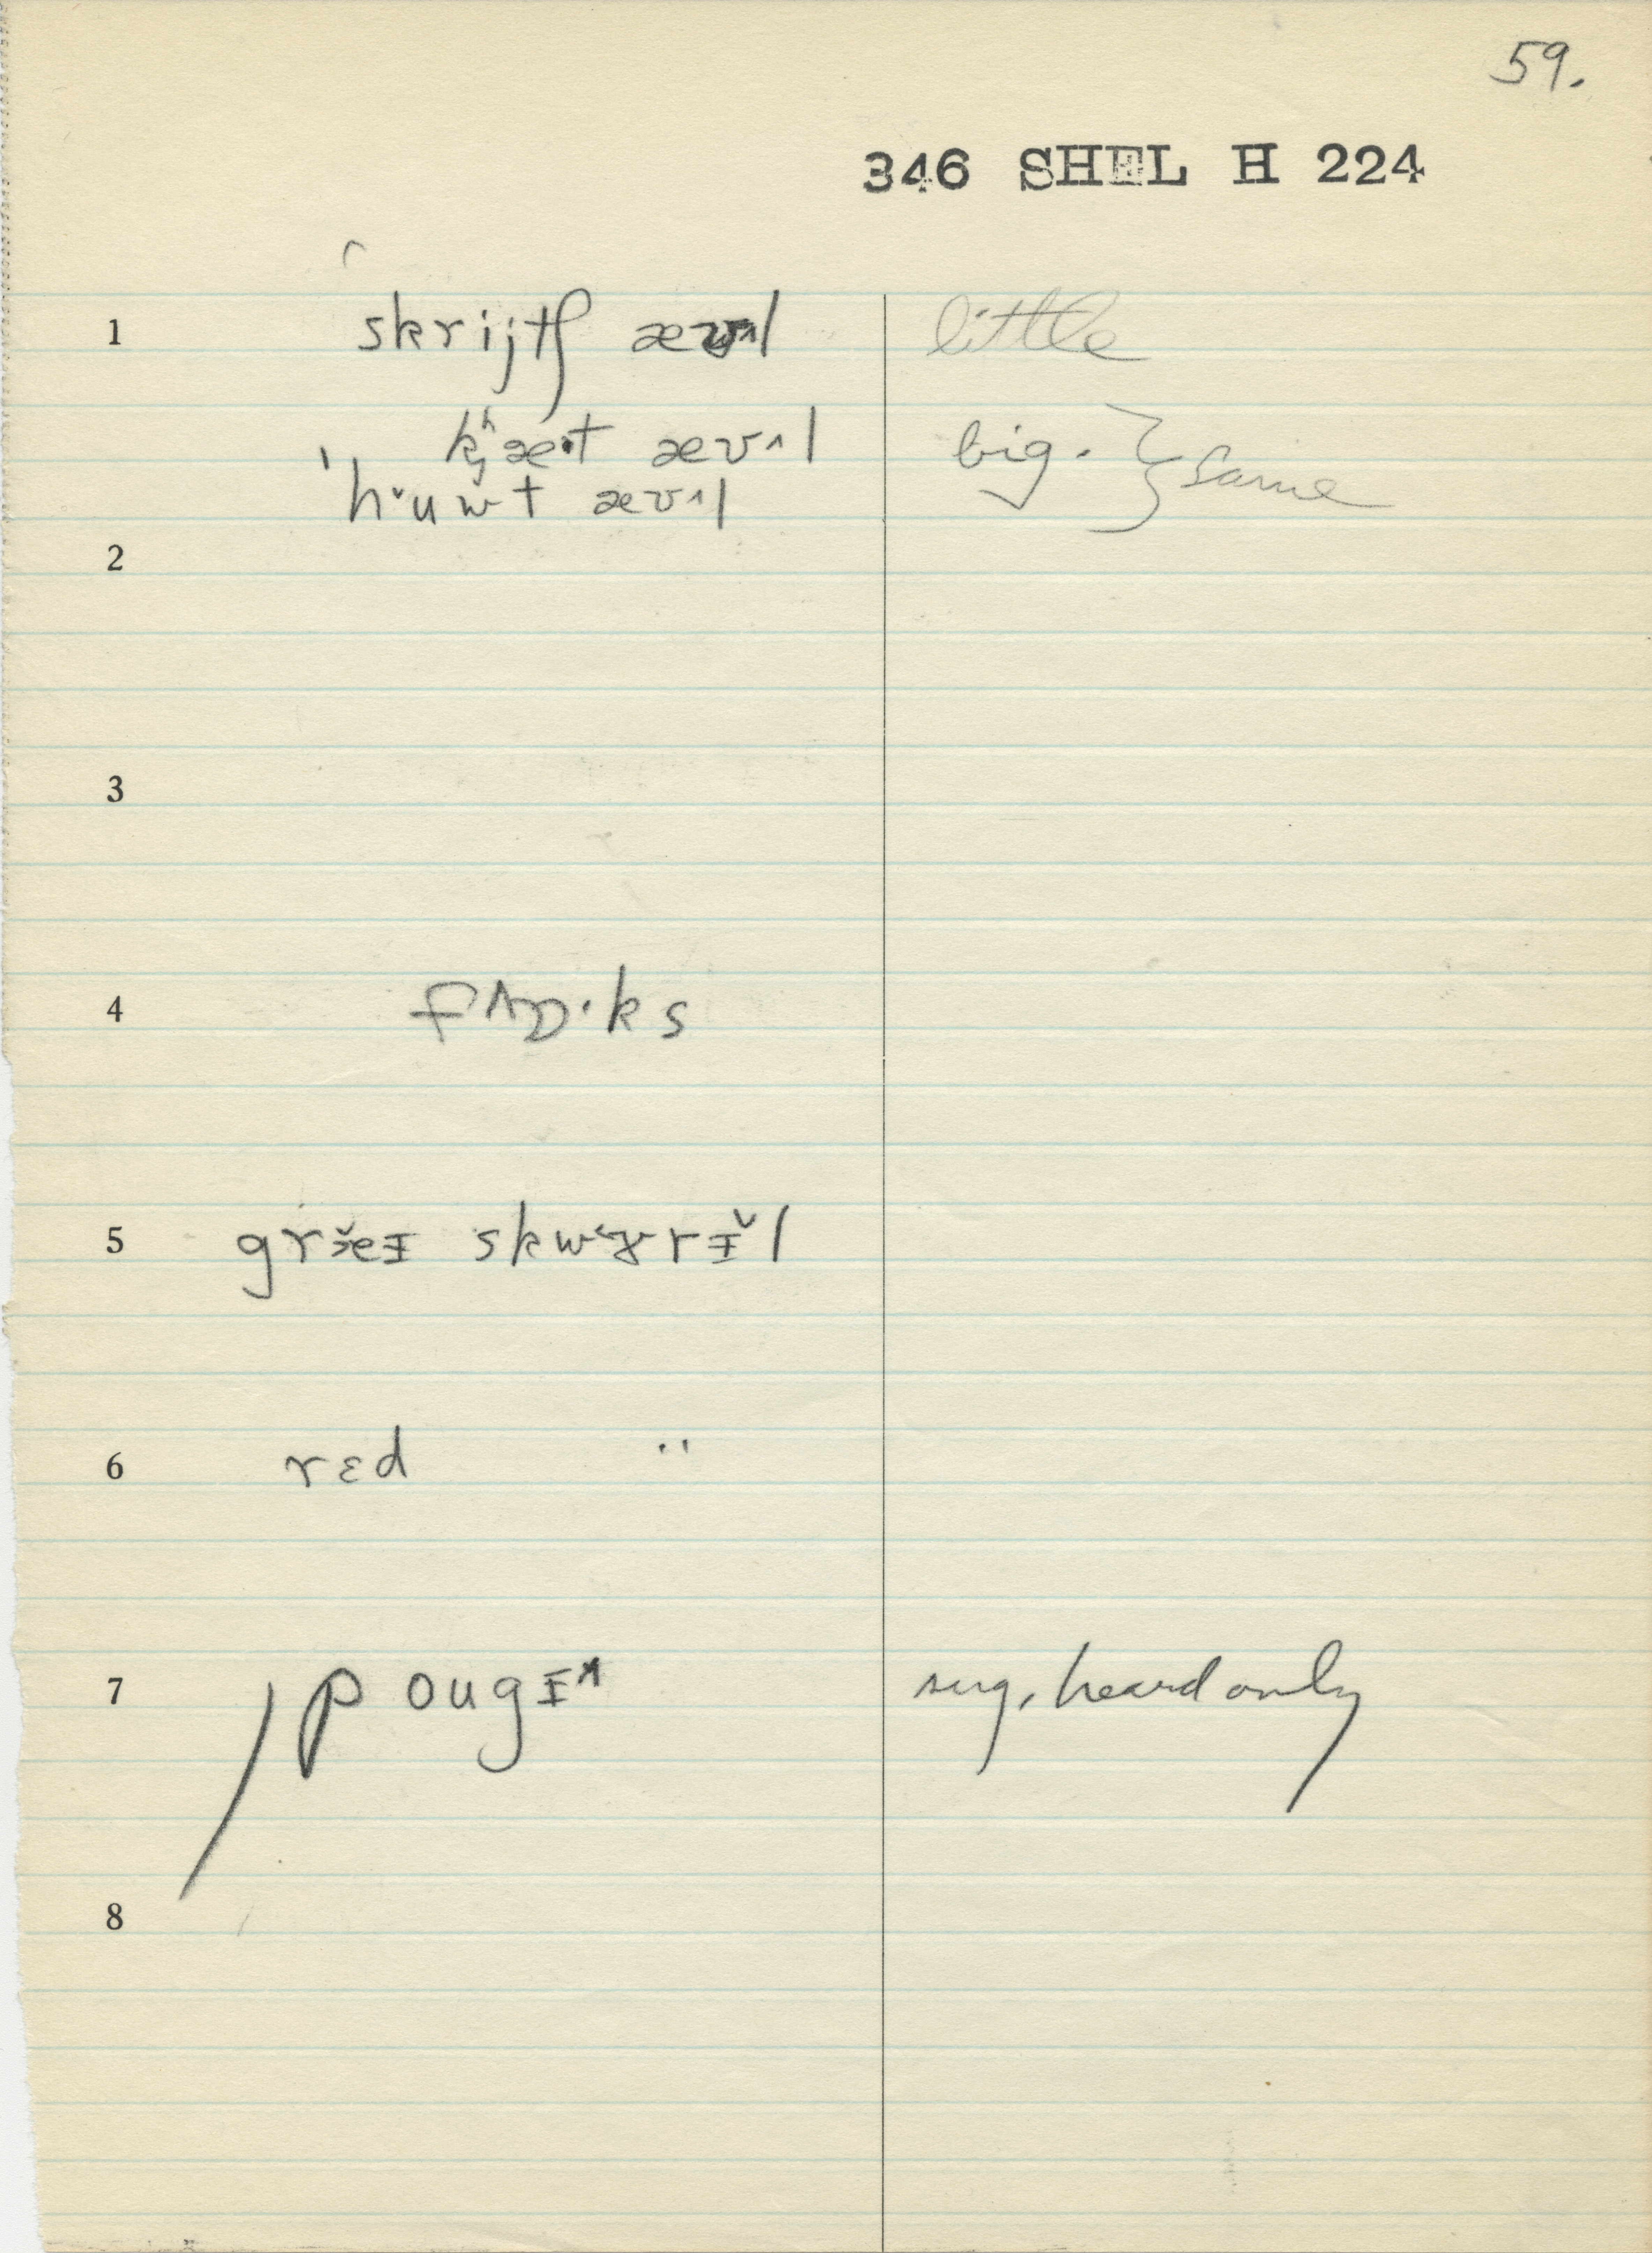 59.
346 SHEL H 224
1 skrijtʃ æv^l little
kʰæ·t æv^l big. } same
'hŭuwt æv^l
2
3
4 fʌɒ·ks
5 græ̆eɪ skwɝrɪ̆l
6 rɛd "
7 p ougɪ^ sug. heard only
8